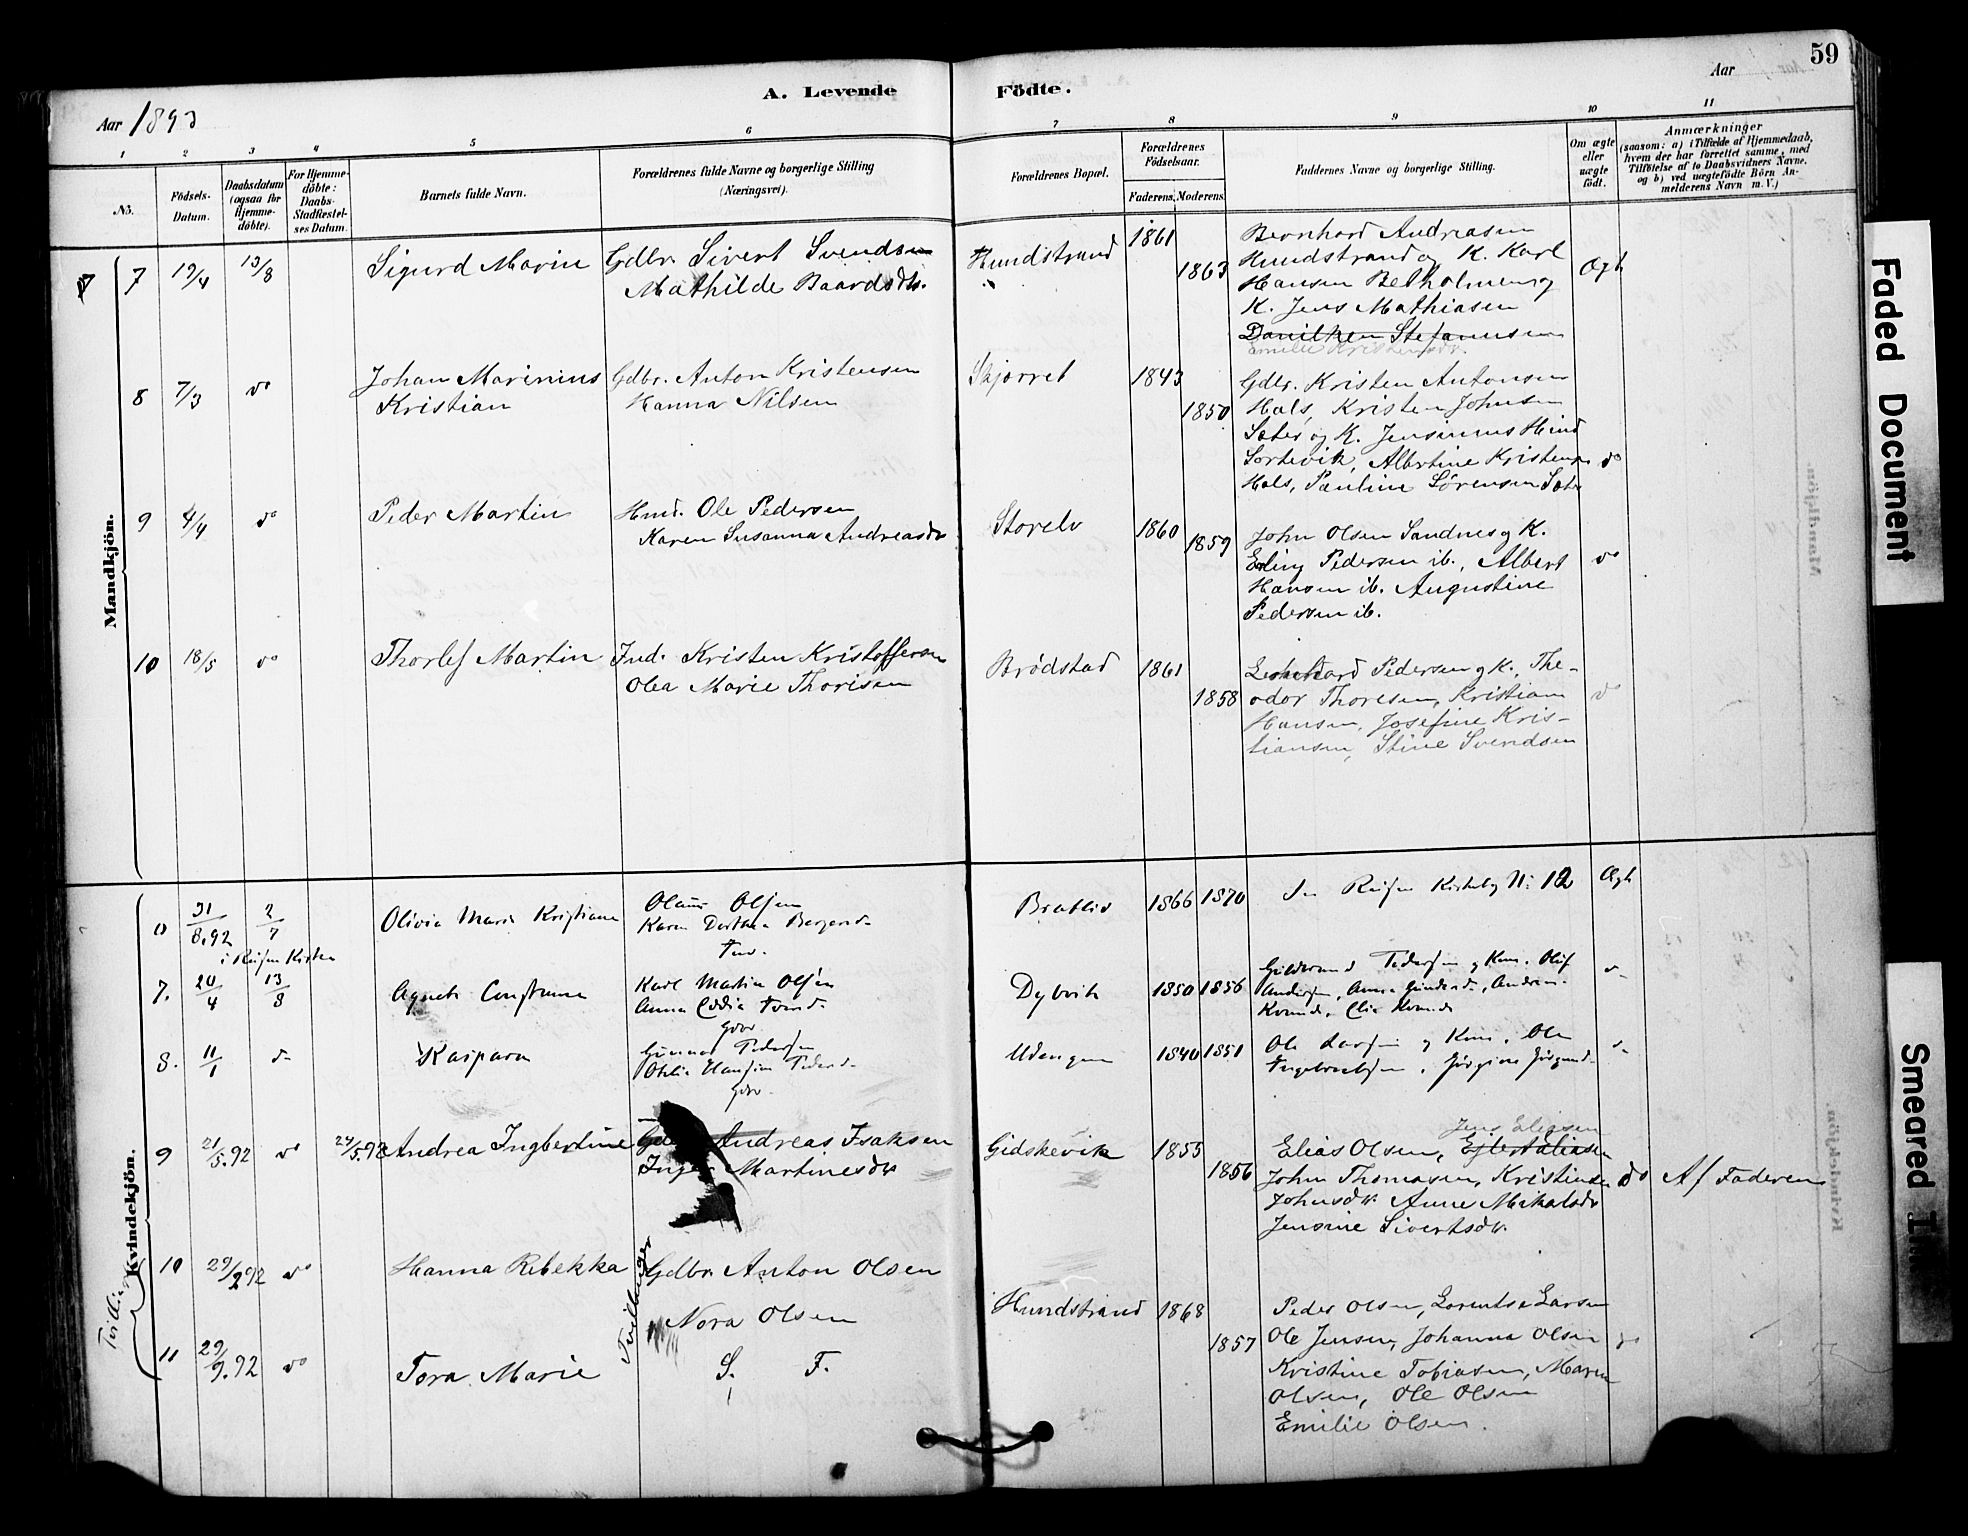 59
Aar 1893
A. Levende Födte.
Aar
1 2 3 4 5 6 7 8 9 10 11
No.
Födsels-Datum.
Daabsdatum (ogsaa för Hjemme-döbte).
For Hjemme-döbte: Daabs-Stadfæstel-ses Datum.
Barnets fulde Navn.
Forældrenes fulde Navne og borgerlige Stilling
(Næringsvei).
Forældrenes Bopæl.
Forældrenes Födselsaar.
Faderens. Moderens.
Faddernes Navne og borgerlige Stilling.
Om ægte eller uægte født.
Anmærkninger
(saasom: a) i Tilfælde af Hjemmedaab,
hvem der har forrettet samme, med
Tilføielse af to Daabsvidners Navne.
og b) ved uægtefødte Börn An-
melderens Navn m. V.)
Mandkjön.
7 19/4 13/8 Sigurd Marin Gdbr. Sivert Svendsen
Mathilde Baardsdtr.
Hundstrand 1861 1863
Bernhard Andreasen
Hundstrand og K. Karl
Hansen Betholmen og
K. Jens Mathiasen
Stefanussen
Emilie Kristensdtr.
Ægt
8 7/3 do Johan Marinius
Kristian
Gdbr. Anton Kristensen
Hanna Nilsen
Skjærret 1843 1850
Gdbr. Kristen Antonsen
Hals, Kristen Johnsen
Sæter og K. Jensinius Hind
Sortevik, Albertine Kristensen
Hals, Pauline Sörensen Sæter
do
9 4/4 do Peder Martin
Hmd. Ole Pedersen
Karen Susanna Andreasdtr
Storelv 1860 1859
John Olsen Sandnes og K.
Erling Pedersen ib., Albert
Hansen ib. Augustine
Pedersen ib.
do
10 18/5 do Thorlef Martin
Ind. Kristen Kristoffersen
Olea Marie Thorisen
Brödstad 1861 1858
Leonhard Pedersen og K., The-
odor Thoresen, Kristian
Hansen, Josefine Kris-
tiansen, Stine Svendsen
do
Kvindekjön.
31/8.92 2/7
i Reisen Kirken
Olivia Marie Kristiane
Olaus Olsen
Karen Dorthea
Brattli 1866 1870
Kirkebog N: 12 Ægt
7. 20/4 13/8 Agnete Constanse
Karl Martin Olsen
Anna
Gdbr
Dybvik 1850 1856
Pedersen og Kone. Oluf
Andersen, Anna
8. 11/1 do Kaspara
Gunnar Pedersen
Hansine Peders d.
Gdbr.
Udengen 1840 1851
Ole Larsen og Kone, Ole
Ingebrectsen, Jörgine
9 21/5.92 do 24/5.92 Andrea Ingbertine
Gdbr. Andreas Isaksen
Inger Martinesdtr
Gidskevik 1855 1856
Jens Eliasen
Elias Olsen, Ejlert Eliasen
John Thomasen, Kristine
Johnsdtr. Anne Mikalsdtr
Jensine Sivertsdtr.
do Af Faderen
Tvillinger
10 29/9.92 do Hanna Rebekka
Gdbr. Anton Olsen
Nora Olsen
Tvillinger
Hundstrand 1868 1857
Peder Olsen, Lorentse Larsen
Ole Jensen, Johanna Olsen
Kristine Tobiasen, Maren
Olsen, Ole Olsen
Emilie Olsen.
do
11 29/9.92 do Tora Marie
S. F.
Faded Document
Smeared Ink